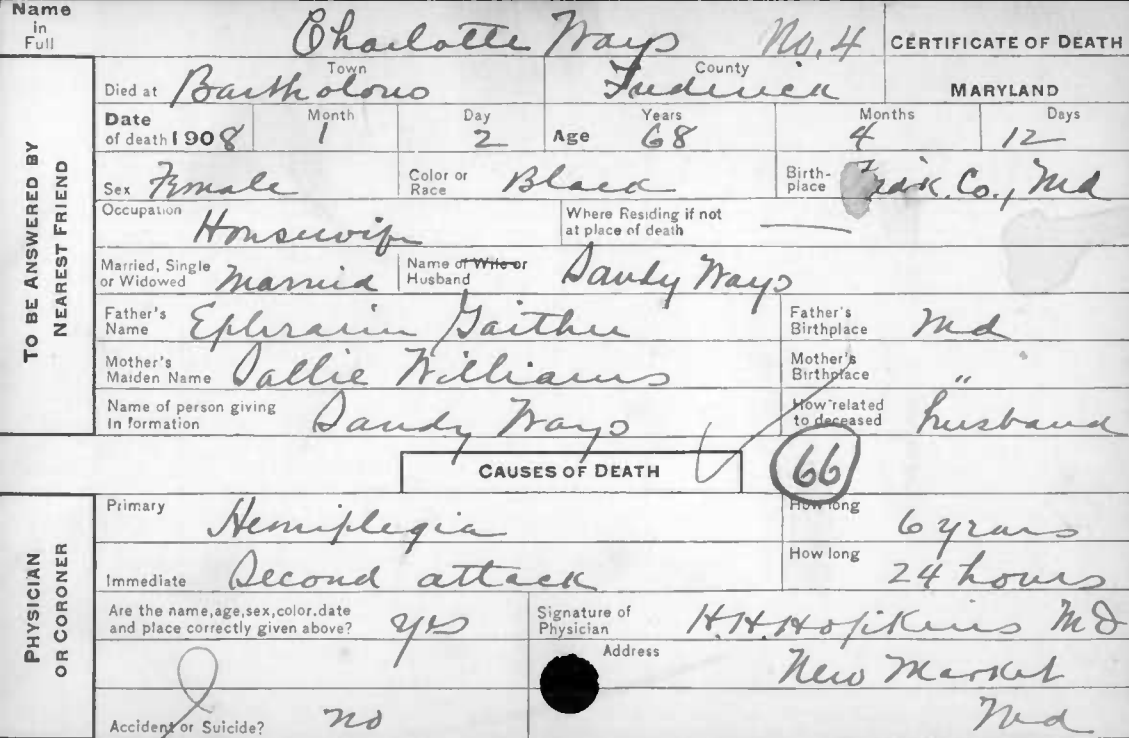 Name in Full Charlotte Ways No. 4 CERTIFICATE OF DEATH
TO BE ANSWERED BY NEAREST FRIEND
Died at Town Bartholows County Frederick MARYLAND
Date of death 1908 Month 1 Day 2 Age Years 68 Months 4 Days 12
Sex Female Color or Race Black Birth-place Fredk. Co., Md
Occupation Housewife Where Residing if not at place of death —
Married, Single or Widowed Married Name of Wife or Husband Sandy Ways
Father's Name Ephraim Gaither Father's Birthplace Md
Mother's Maiden Name Sallie Williams Mother's Birthplace "
Name of person giving Information Sandy Ways How related to deceased husband
CAUSES OF DEATH 66
PHYSICIAN OR CORONER
Primary Hemiplegia How long 6 years
Immediate Second attack How long 24 hours
Are the name,age,sex,color.date and place correctly given above? yes Signature of Physician H.H. Hopkins MD
Address New Market
Accident or Suicide? no Md